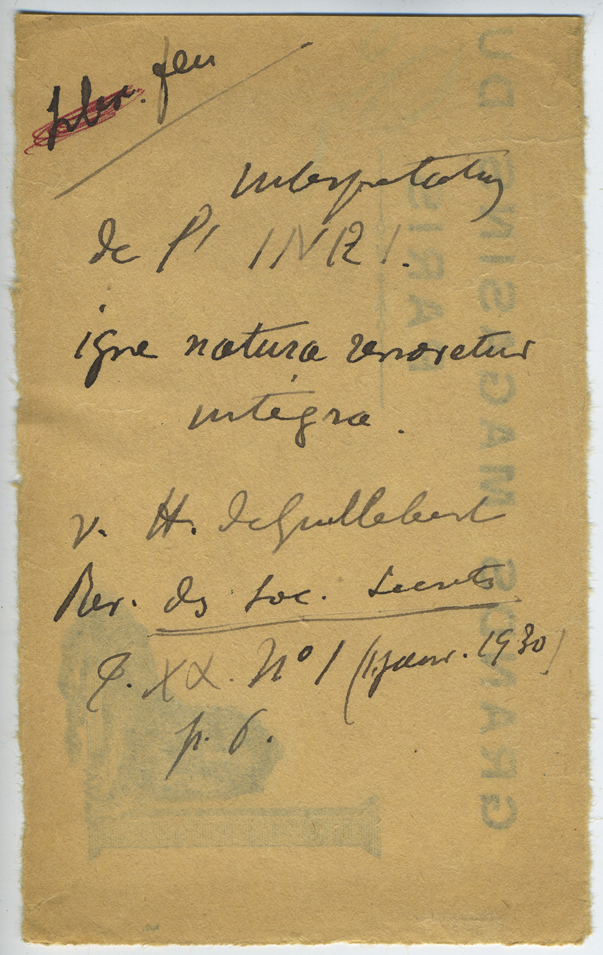 feu
Interpretation
de l' INRI.
igne natura renovetur
intégra.
v. H. de Guillebert
Rev. des Soc. Secrètes
T. XX. N° 1 (1 janv. 1930)
p. 6.
GRANDS MAGASINS DU
PARIS